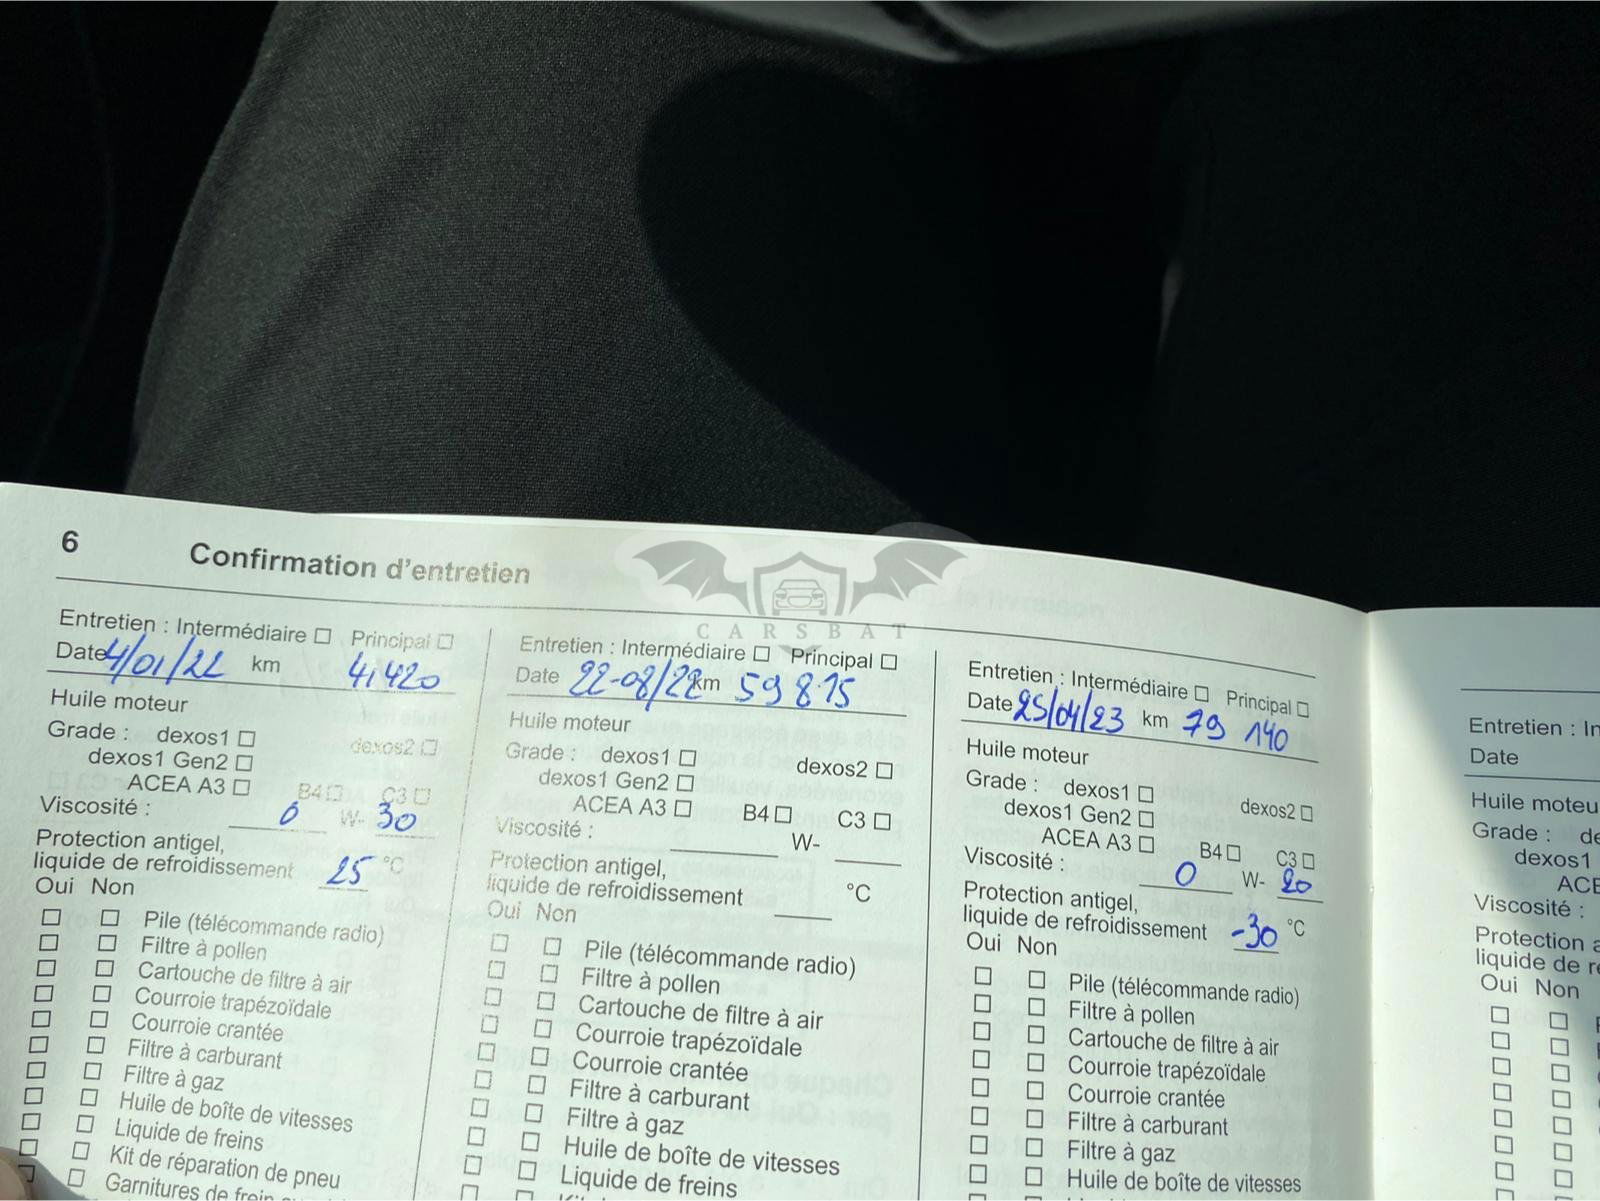 6 Confirmation d'entretien
CARSBAT
Entretien : Intermédiaire ☐ Principal ☐
Date 4/01/22 km 41420
Huile moteur
Grade : dexos1 ☐ dexos2 ☐
dexos1 Gen2 ☐
ACEA A3 ☐ B4 ☐ C3 ☐
Viscosité : 0 W- 30
Protection antigel,
liquide de refroidissement 25 °C
Oui Non
☐ ☐ Pile (télécommande radio)
☐ ☐ Filtre à pollen
☐ ☐ Cartouche de filtre à air
☐ ☐ Courroie trapézoïdale
☐ ☐ Courroie crantée
☐ ☐ Filtre à carburant
☐ ☐ Filtre à gaz
☐ ☐ Huile de boîte de vitesses
☐ ☐ Liquide de freins
☐ ☐ Kit de réparation de pneu
☐ ☐ Garnitures de frein
Entretien : Intermédiaire ☐ Principal ☐
Date 22-08/22 km 59 815
Huile moteur
Grade : dexos1 ☐ dexos2 ☐
dexos1 Gen2 ☐
ACEA A3 ☐ B4 ☐ C3 ☐
Viscosité : W-
Protection antigel,
liquide de refroidissement °C
Oui Non
☐ ☐ Pile (télécommande radio)
☐ ☐ Filtre à pollen
☐ ☐ Cartouche de filtre à air
☐ ☐ Courroie trapézoïdale
☐ ☐ Courroie crantée
☐ ☐ Filtre à carburant
☐ ☐ Filtre à gaz
☐ ☐ Huile de boîte de vitesses
☐ ☐ Liquide de freins
Entretien : Intermédiaire ☐ Principal ☐
Date 25/04/23 km 79 140
Huile moteur
Grade : dexos1 ☐ dexos2 ☐
dexos1 Gen2 ☐
ACEA A3 ☐ B4 ☐ C3 ☐
Viscosité : 0 W- 20
Protection antigel,
liquide de refroidissement -30 °C
Oui Non
☐ ☐ Pile (télécommande radio)
☐ ☐ Filtre à pollen
☐ ☐ Cartouche de filtre à air
☐ ☐ Courroie trapézoïdale
☐ ☐ Courroie crantée
☐ ☐ Filtre à carburant
☐ ☐ Filtre à gaz
☐ ☐ Huile de boîte de vitesses
Entretien : In
Date
Huile moteu
Grade : de
dexos1
ACE
Viscosité :
Protection a
liquide de re
Oui Non